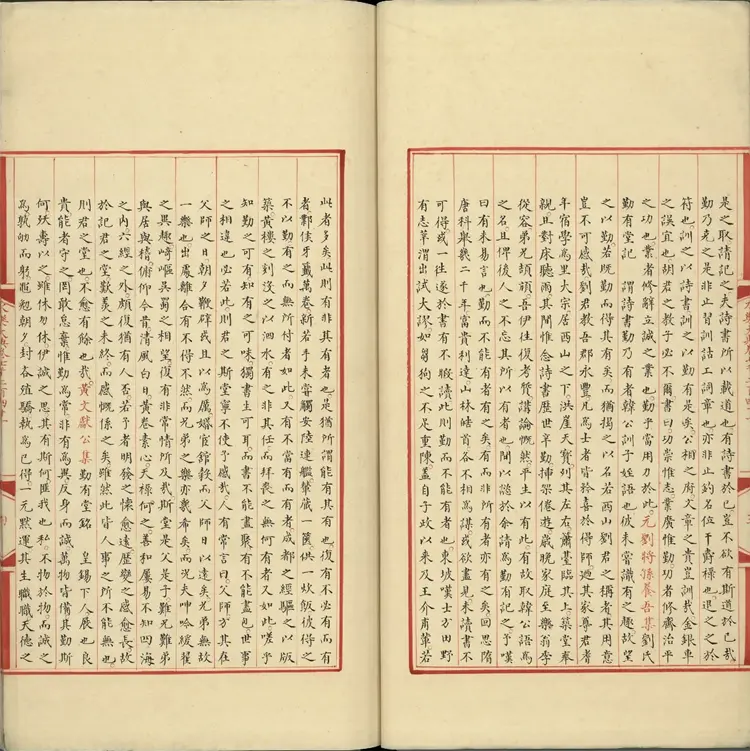 是之取請記之夫詩書所以載道也有詩書於已豈不欲有斯道於已哉
勤乃克之是非止習訓詁工詞章也亦非止釣名位干爵祿也退之之於
符也訓之以詩書訓之以勤有是矣公相之府文章之貴豈訓哉金銀車
之誤宜也胡君之教子必不爾書曰功崇惟志業廣惟勤功者修齊治平
之功也業者修辭立誠之業也勤乎當用力於此元劉將孫養吾集劉氏
勤有堂記 謂詩書勤乃有者韓公訓子姪語也彼未嘗識有之趣故望
之以勤若既勤而得其有矣而猶揭之以名若西山劉君之稱者其用意
豈不可感哉劉君教吾郡永豐凡為士者皆於喜於得師過其家尊君者
年宿學為里大宗居西山之下洪崖天寶列其左右蕭臺臨其上築堂奉
親且對床聽雨其間惟念詩書歷世辛勤掃架倦遊歲晚家庭至樂翁季
從容弟兄頡頏吾伊往復考質講論慨然平生以有此有故取韓公語為
之名且俾後人之不忘其所以有者也間以諗於余請為勤有記之予嘆
曰有未易言也勤而不能有者有之矣有而非所有者亦有之矣回思隋
唐科舉幾二千年富貴利達山林皓首各不相為謀或欲盡見未讀書不
可得或一往遂於書有不暇讀此則勤而不能有者也東坡嘆士方田野
有志草渭出試大謬如芻狗之不足重陳蓋自予政以來及王介甫輩若
此者多矣此則有非其有者也是猶所謂能有其有也復有不必有而有
者鄴侯牙籤萬卷新若手未嘗觸安陸連艫輦歲一篋供一炊飯彼得之
不以勤有之而無所恃者如此又有不當有而有者成都之經驅之以版
築黃樓之刻沒之以泗水有之非其任而拜喪之無何有者又如此嗟乎
知勤之可有知有之可味獨書生可耳而書不能盡聚有不能盡包世事
之相違也必若此則君之斯堂寧不使予感哉人有常言曰父師方其在
父師之日朝夕鞭碑或且以為厲嬉官館穀而父師日以遠矣兄弟無故
一樂也出處離合有不得不然而兄弟之樂亦襄希矣而況夫呻吟緩翟
之異趣崎嶇吳蜀之相望復有非常情所及哉斯堂是父是子難兄難弟
與居與稽俯仰今昔清風白日黃卷素心天祿何之善和屢易不知四海
之內六經之外頗復猶有人否若予者明發之懷愈遠歷變之感愈長故
於記君之堂歎羨之未終而感慨係之矣雖然此皆人事之所不能無也
則君之堂也不愈有餘也哉黃文獻公集勤有堂銘 皇錫下人厥也良
貴能者守之罔敢怠棄惟勤為常非有為與反身而誠萬物皆備其勤斯
何殀壽以之雖休勿休伊誠之思其有斯何匪我也私不物於物而誠之
為孰劬而躬匪勉朝夕封各殖驕孰為已得一元默運其主職職天德之